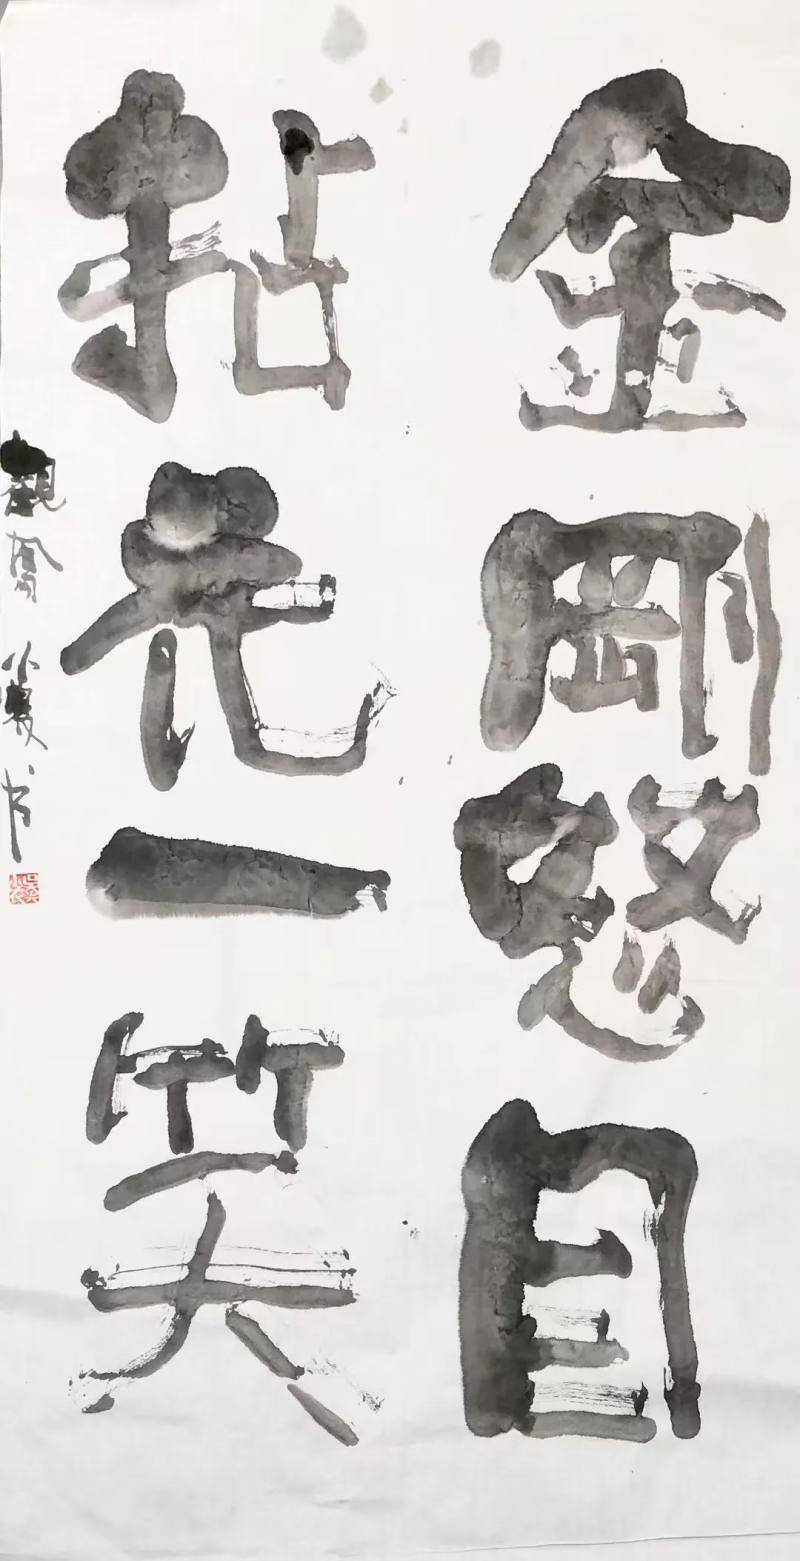 金剛怒目
拈花一笑
觀鶯 小裂书